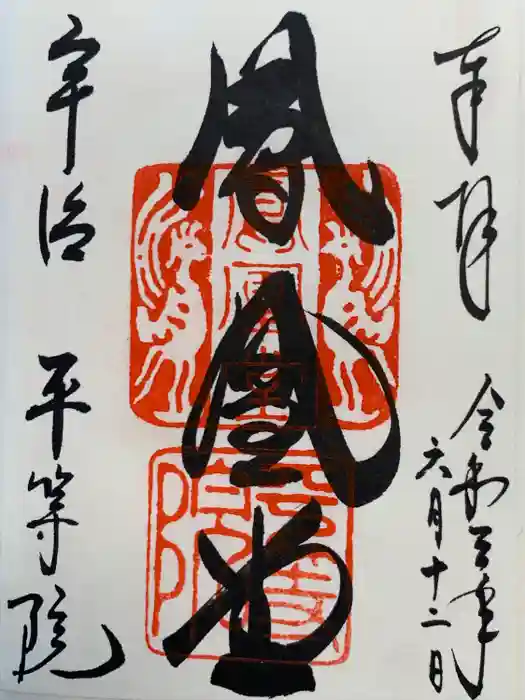 奉拝
令和三年
六月十二日
鳳凰堂
鳳凰堂
平等院
宇治 平等院